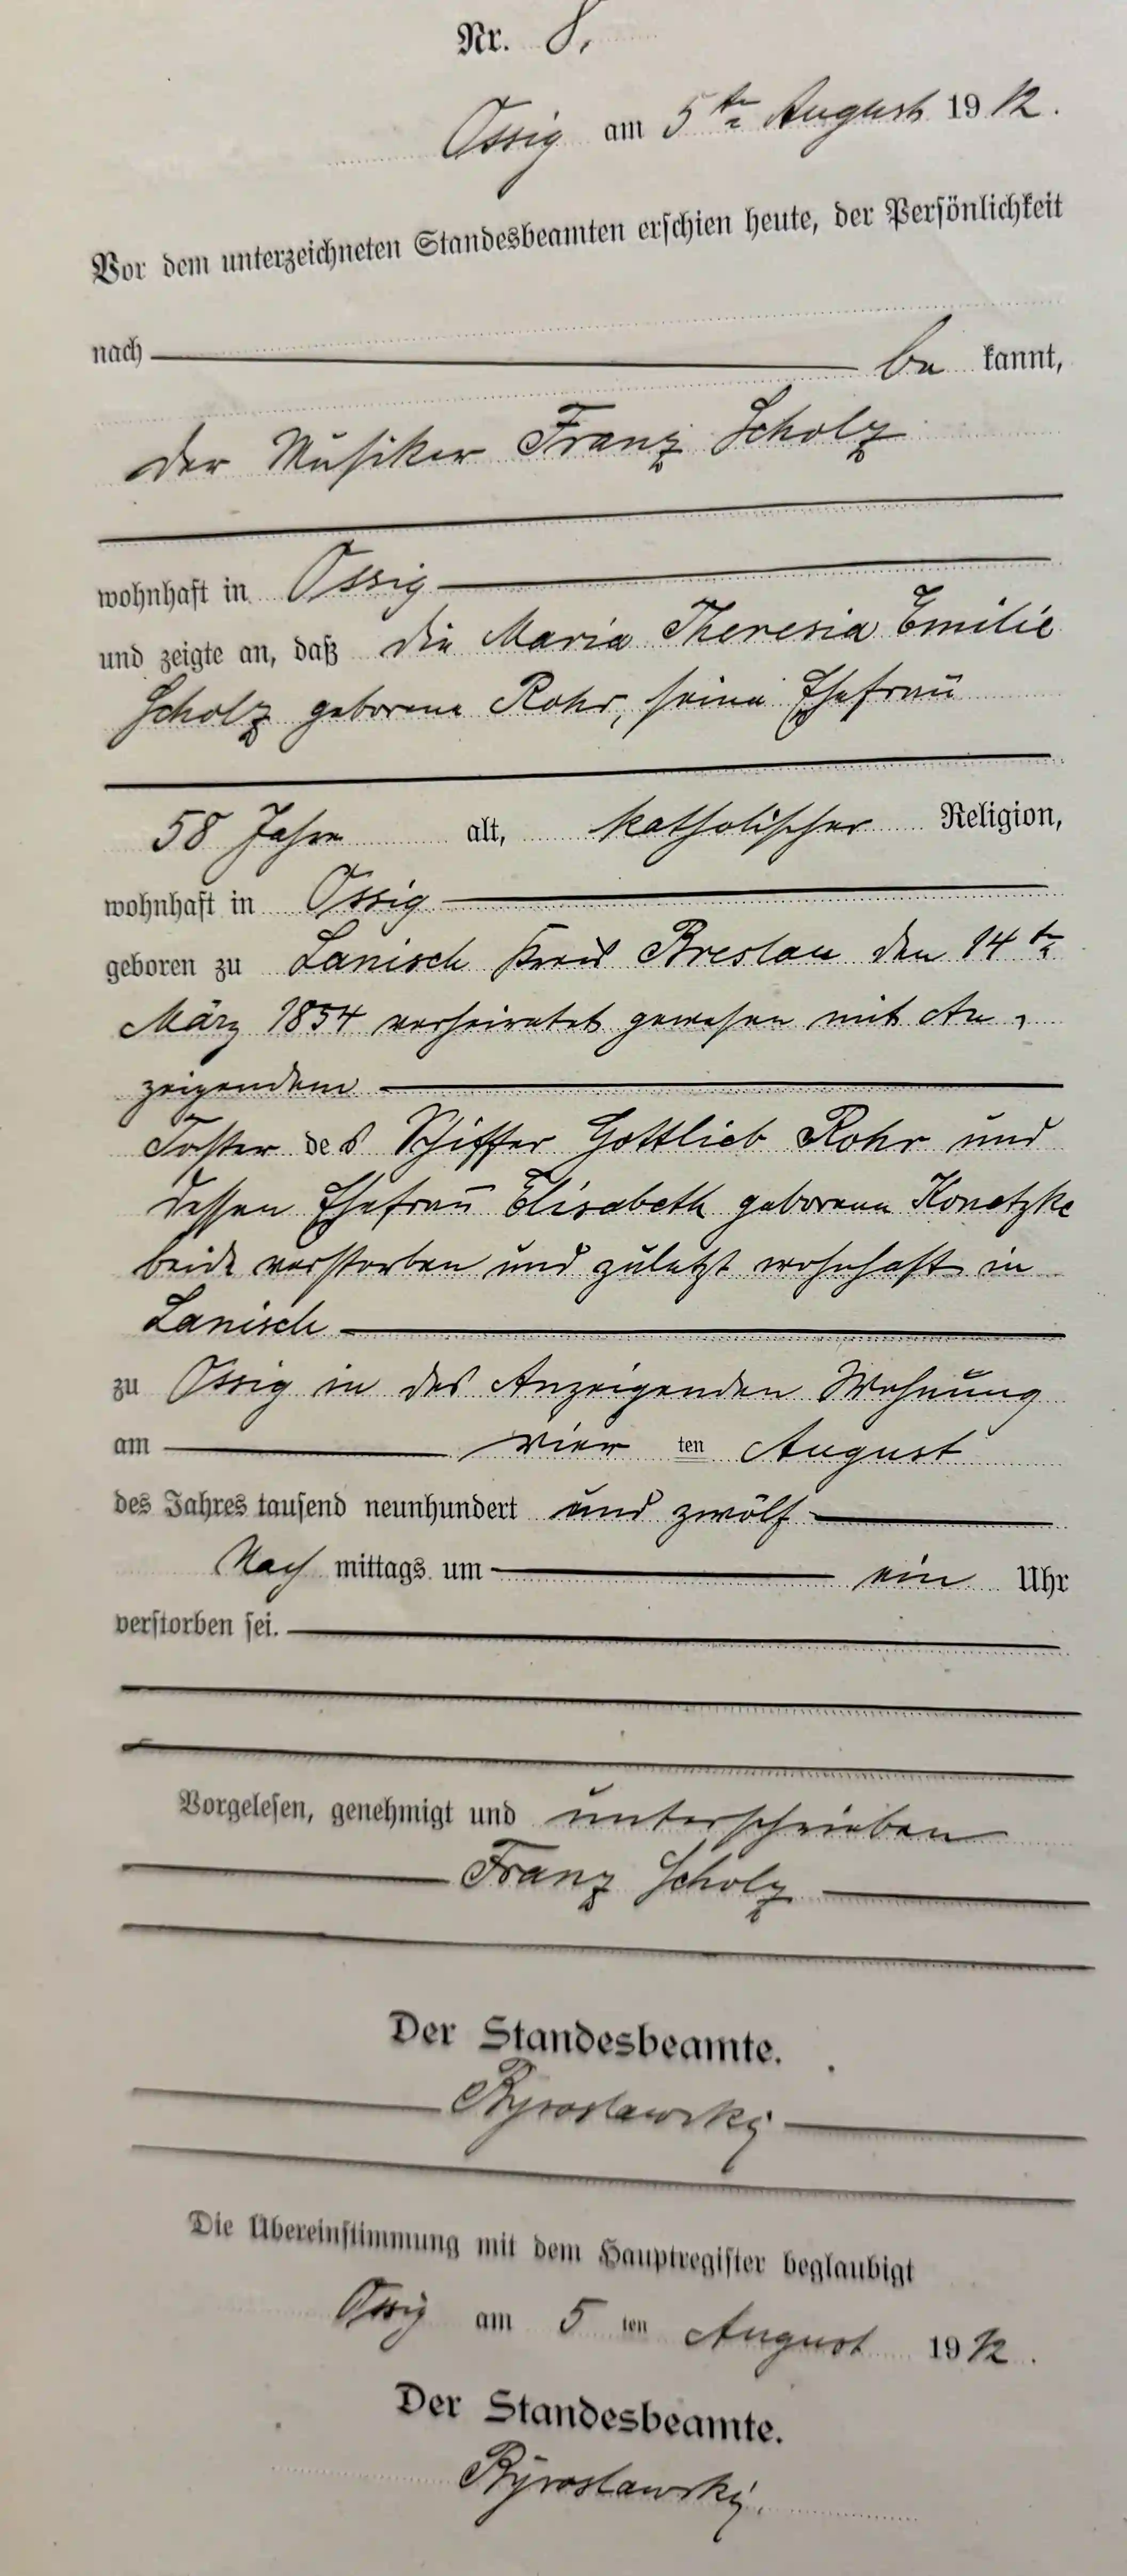 Nr. 8.
Ossig am 5ten August 1912.
Vor dem unterzeichneten Standesbeamten erschien heute, der Persönlichkeit
nach be kannt,
der Musiker Franz Scholz
wohnhaft in Ossig
und zeigte an, daß die Maria Theresia Emilie
Scholz geborene Rohr, seine Ehefrau
58 Jahre alt, katholischer Religion,
wohnhaft in Ossig
geboren zu Lanisch Kreis Breslau den 14ten
März 1854 verheiratet gewesen mit An-
zeigendem
Tochter des Schiffer Gottlieb Rohr und
dessen Ehefrau Elisabeth geborene Konetzke
beide verstorben und zuletzt wohnhaft in
Lanisch
zu Ossig in des Anzeigenden Wohnung
am vier ten August
des Jahres tausend neunhundert und zwölf
Nach mittags um ein Uhr
verstorben sei.
Vorgelesen, genehmigt und unterschrieben
Franz Scholz
Der Standesbeamte.
Die Übereinstimmung mit dem Hauptregister beglaubigt
Ossig am 5 ten August 1912.
Der Standesbeamte.